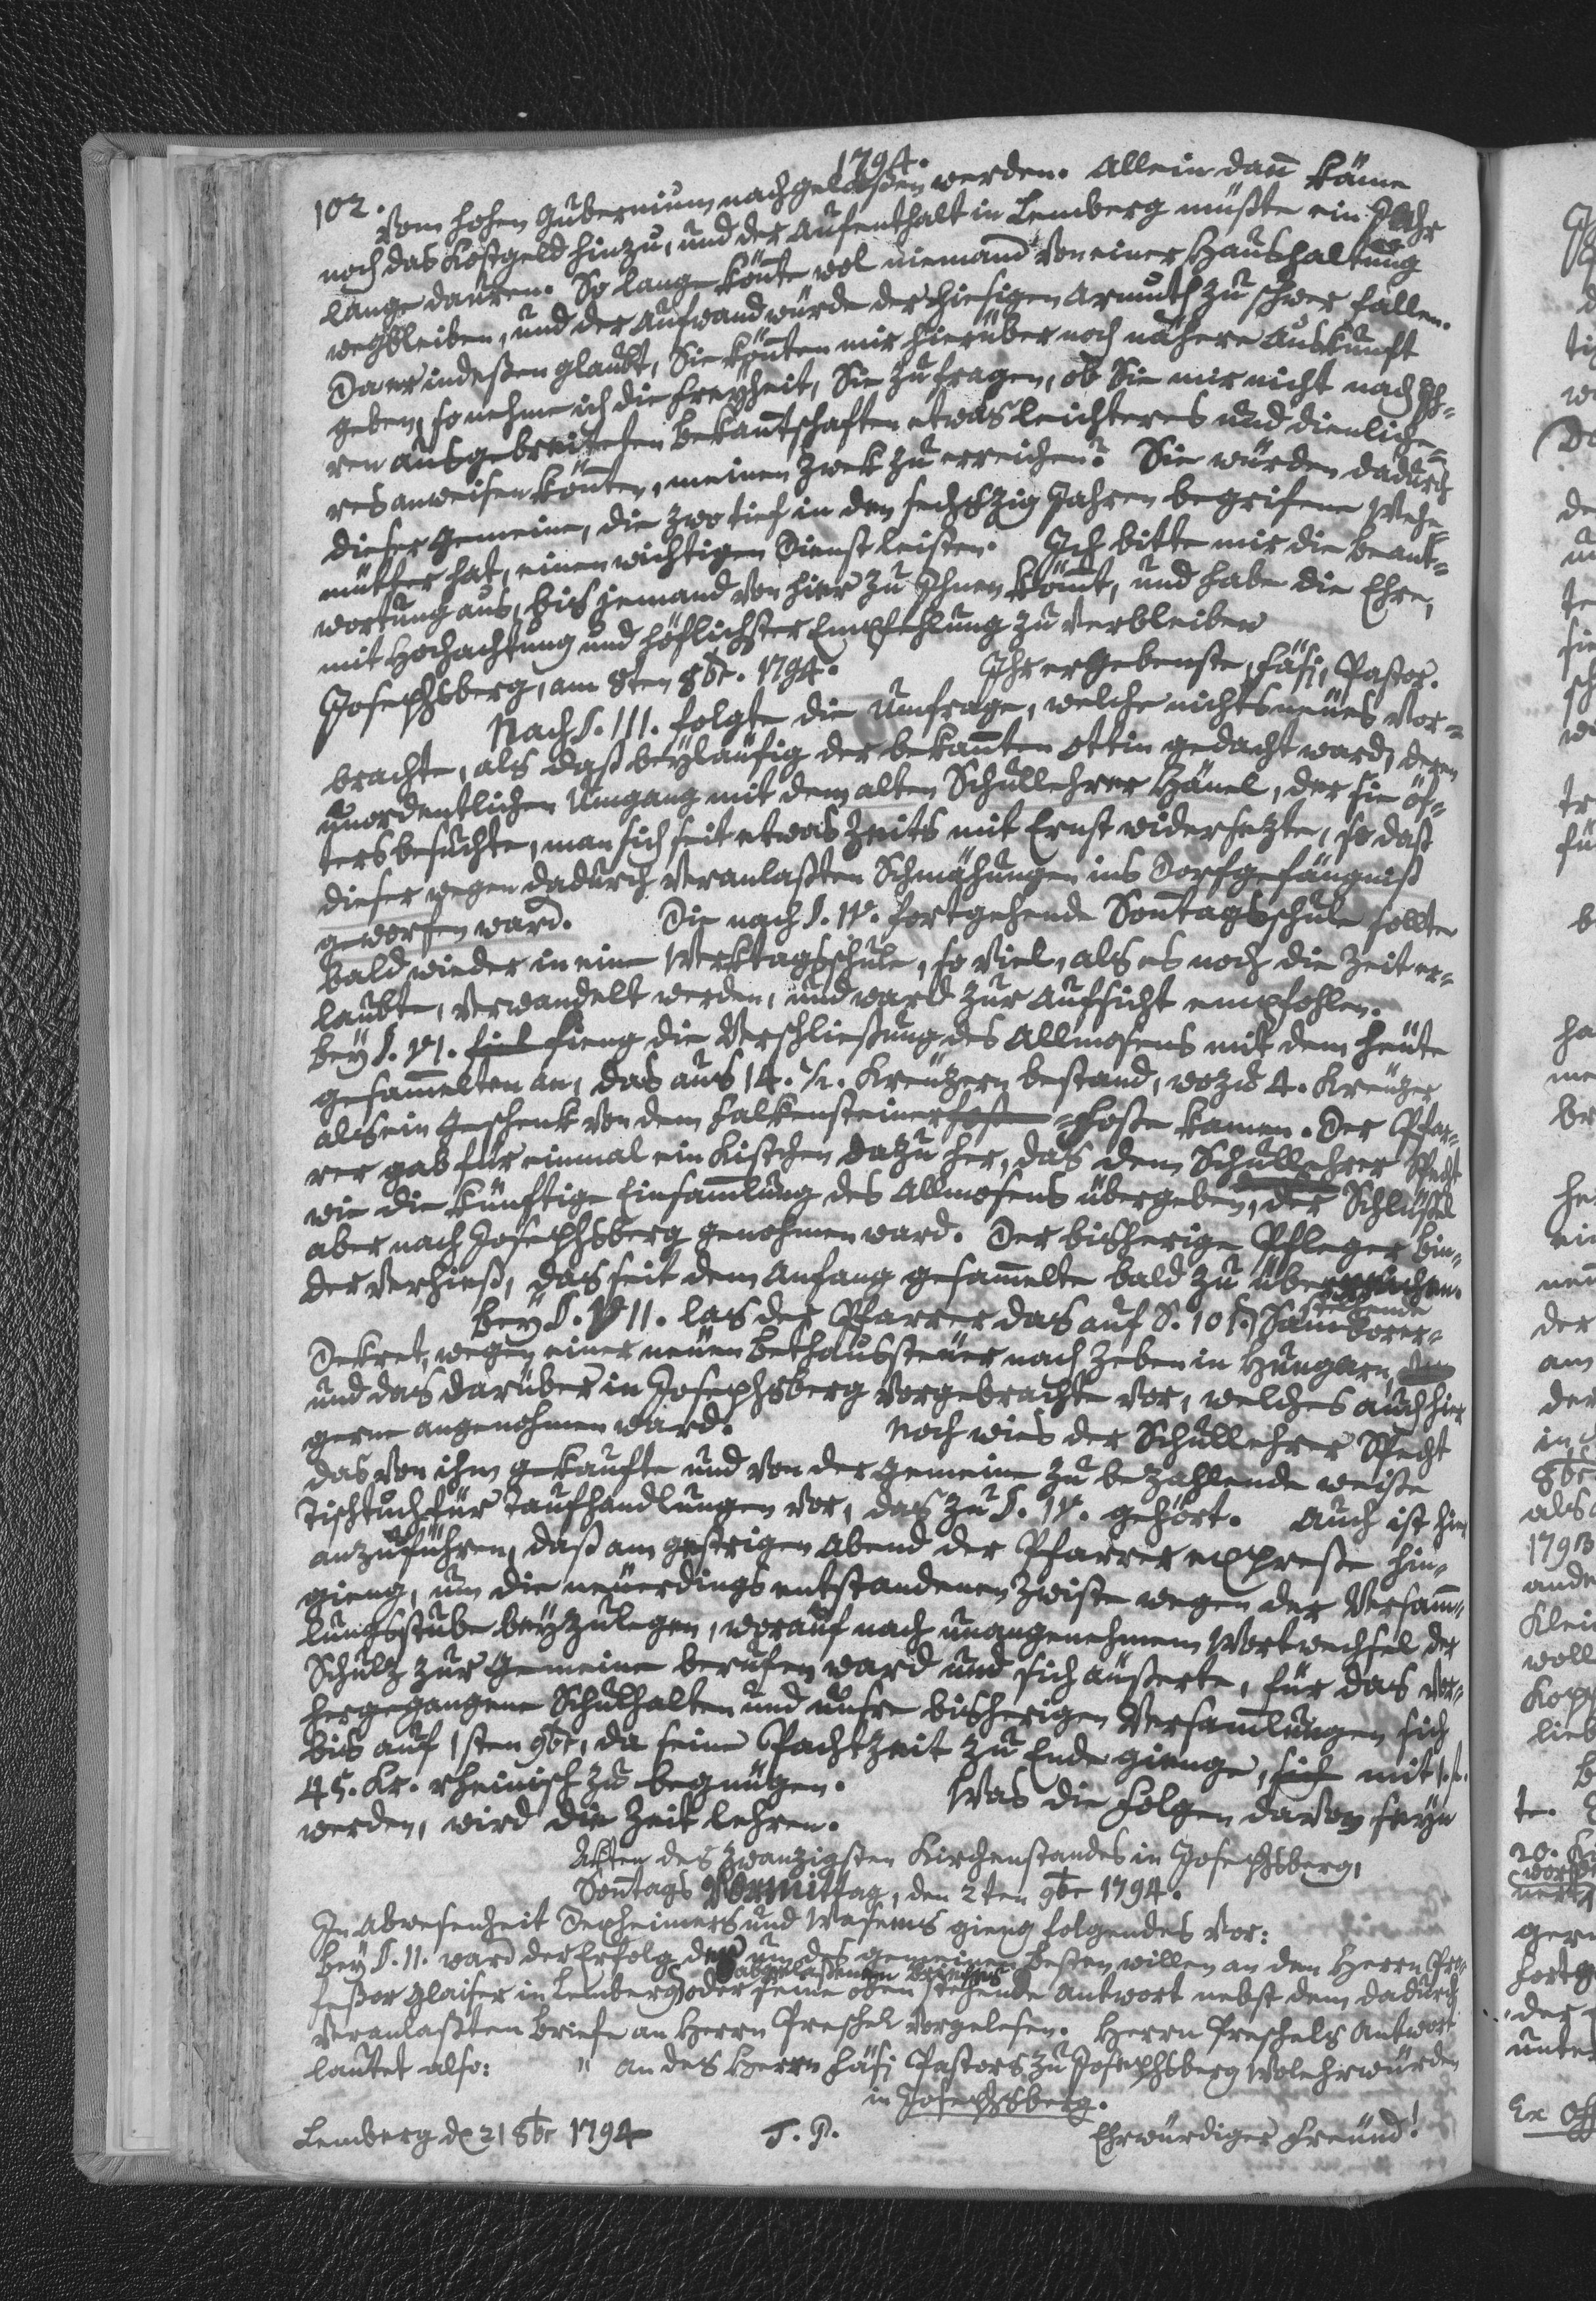 102.
1794.
vom hohen Gubernium nachgelaßen werden. Allein dañ käme
noch das Kostgeld hinzu, und der Aufenthalt in Lemberg müßte ein Jahr
lange dauren. So lange könte wol niemand von einer Haushaltung
wegbleiben, und der Aufwand würde der hiesigen Armuth zu schwer fallen.
Da er indeßen glaubt, Sie könten mir hierüber noch nähere Auskunft
geben, so nehme ich die Freyheit, Sie zu fragen, ob Sie mir nicht nach Ih-
ren ausgebreiteten Bekañtschaften etwas leichteres und dienliche-
res anweisen könten, meinen Zwek zu erreichen? Sie würden dadurch
dieser Gemeine, die zwo tief in den sechszig Jahren begrifene Wehe-
mütter hat, einen wichtigen Dienst leisten. Ich bitte mir die Beant-
wortung aus, bis jemand von hier zu Ihnen kömt, und habe die Ehre,
mit Hochachtung und höflichster Empfehlung zu verbleiben
Josephsberg, am 8ten 8br. 1794. Ihr ergebenste, Fäsi, Pastor.
Nach §. III. folgte die Umfrage, welche nichts neues vor-
brachte, als daß beyläufig der bekañten Ottin gedacht ward, deren
unordentlichen Umgang mit dem alten Schullehrer Hänel, der sie öf-
ters besuchte, man sich seit etwas Zeits mit Ernst widersezte, so daß
dieser wegen dadurch veranlaßten Schmähungen ins Dorfgefängniß
geworfen ward. Die nach §. IV. fortgehende Soñtagsschule sollte
bald wieder in eine Werktagsschule, so viel, als es noch die Zeit er-
laubte, verwandelt werden, und ward zur Aufsicht empfohlen.
Bey §. VI. fiel fieng die Verschließung des Allmosens mit dem heute
gesam̃elten an, das aus 14. ½. Kreuzern bestand, wozu 4. Kreuzer
als ein Geschenk von dem Falkensteiner = Hoste kamen. Der Pfar-
rer gab für einmal ein Kistchen dazu her, das dem Schullehrer Specht
wie die künftige Einsam̃lung des Allmosens übergeben, der Schlüßel
aber nach Josephsberg genohmen ward. Der bisherige Pfleger Bin-
der verhieß, das seit dem Anfang gesam̃elte bald zu
Bey §. VII. las der Pfarrer das auf S. 101. stehende Samborer-
Dekret, wegen einer neuen Bethaussteuer nach Zeben in Hungarn,
und das darüber in Josephsberg vorgebrachte vor, welches auch hier
gerne angenohmen ward. Noch wies der Schullehrer Specht
das von ihm gekaufte und von der Gemeine zu bezahlende weiße
Tischtuch für Taufhandlungen vor, das zu §. IV. gehört. Auch ist hier
anzuführen, daß am gestrigen Abend der Pfarrer expresse hin-
gieng, um die neuerdings entstandenen Zwiste wegen der Versam̃-
lungsstube beyzulegen, worauf nach unangenehmem Wortwechsel der
Schulz zur Gemeine berufen ward und sich äußerte, für das vor-
hergegangene Schulhalten und unsre bisherigen Versam̃lungen sich
bis auf 1sten 9br, da seine Pachtzeit zu Ende gienge, sich mit 1. f.
45. Kr. rheinisch zu begnügen. Was die Folgen davon seyn
werden, wird die Zeit lehren.
Akten des zwanzigsten Kirchenstandes in Josephsberg,
Soñtags Vormittag, den 2ten 9br 1794.
In Abwesenheit Dexheimers und Wasems gieng folgendes vor:
Bey §. II. ward der Erfolg des um des gemeinen Besten willen an den Herrn Pro-
feßor Glaiser in Lemberg abgelaßenen Briefes oder seine oben stehende Antwort nebst dem dadurch
veranlaßten Briefe an Herrn Preschel vorgelesen. Herrn Preschels Antwort
lautet also: " An des Herrn Fäsi Pastors zu Josephsberg Wolehrwürden
in Josephsberg.
Lemberg d 21 8br 1794 T. P. Ehrwürdiger Freund!